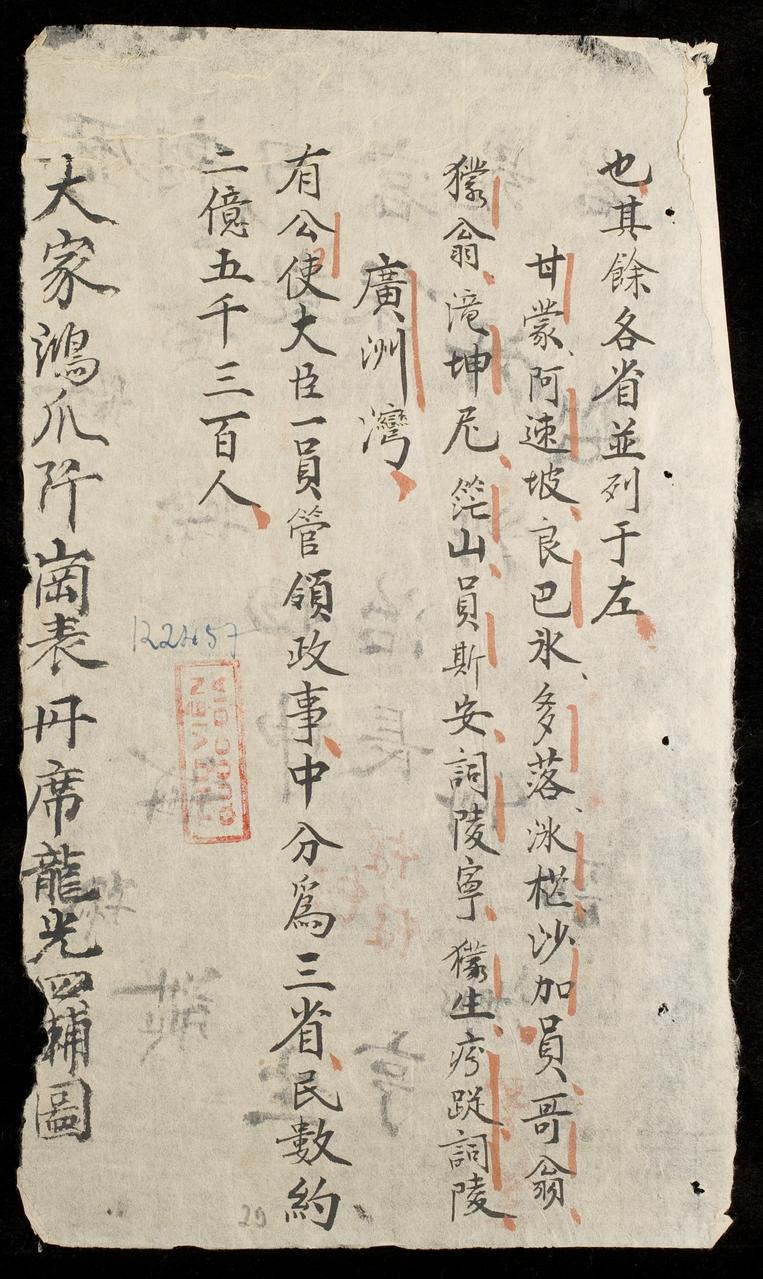 也其餘各省並列于左
甘蒙阿速坡良巴氷多落泳槎沙加員哥翁
獴翁滝坤尼茫山員斯安詞陵寧獴生疞踨詞陵
廣洲灣
有公使大臣一員管領政事中分爲三省民數約
二億五千三百人
大家鴻爪阡崗表丹席龍光四輔圖
R2457
29